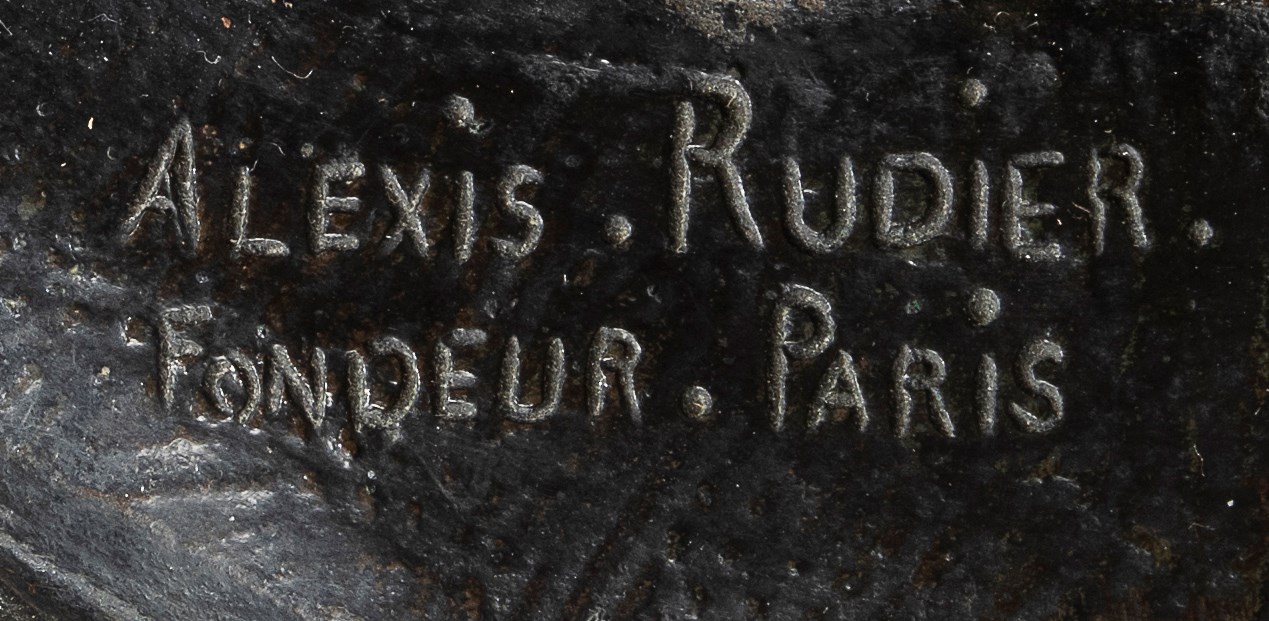 ALEXiS . RUDiER .
FONDEUR . PARiS